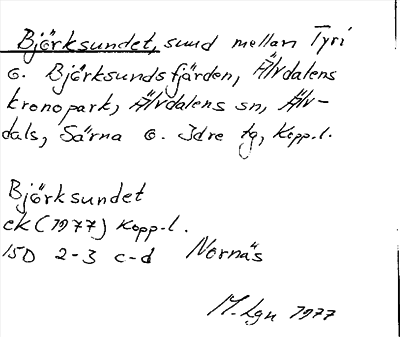 Björksundet, sund mellan Tyri
o. Björksundsfjärden, Älvdalens
kronopark, Älvdalens sn, Älv-
dals, Särna o. Idre tg, Kopp.l.
Björksundet
ek (1977) Kopp.l.
15D 2-3 c-d Nornäs
M. Lgn 1977